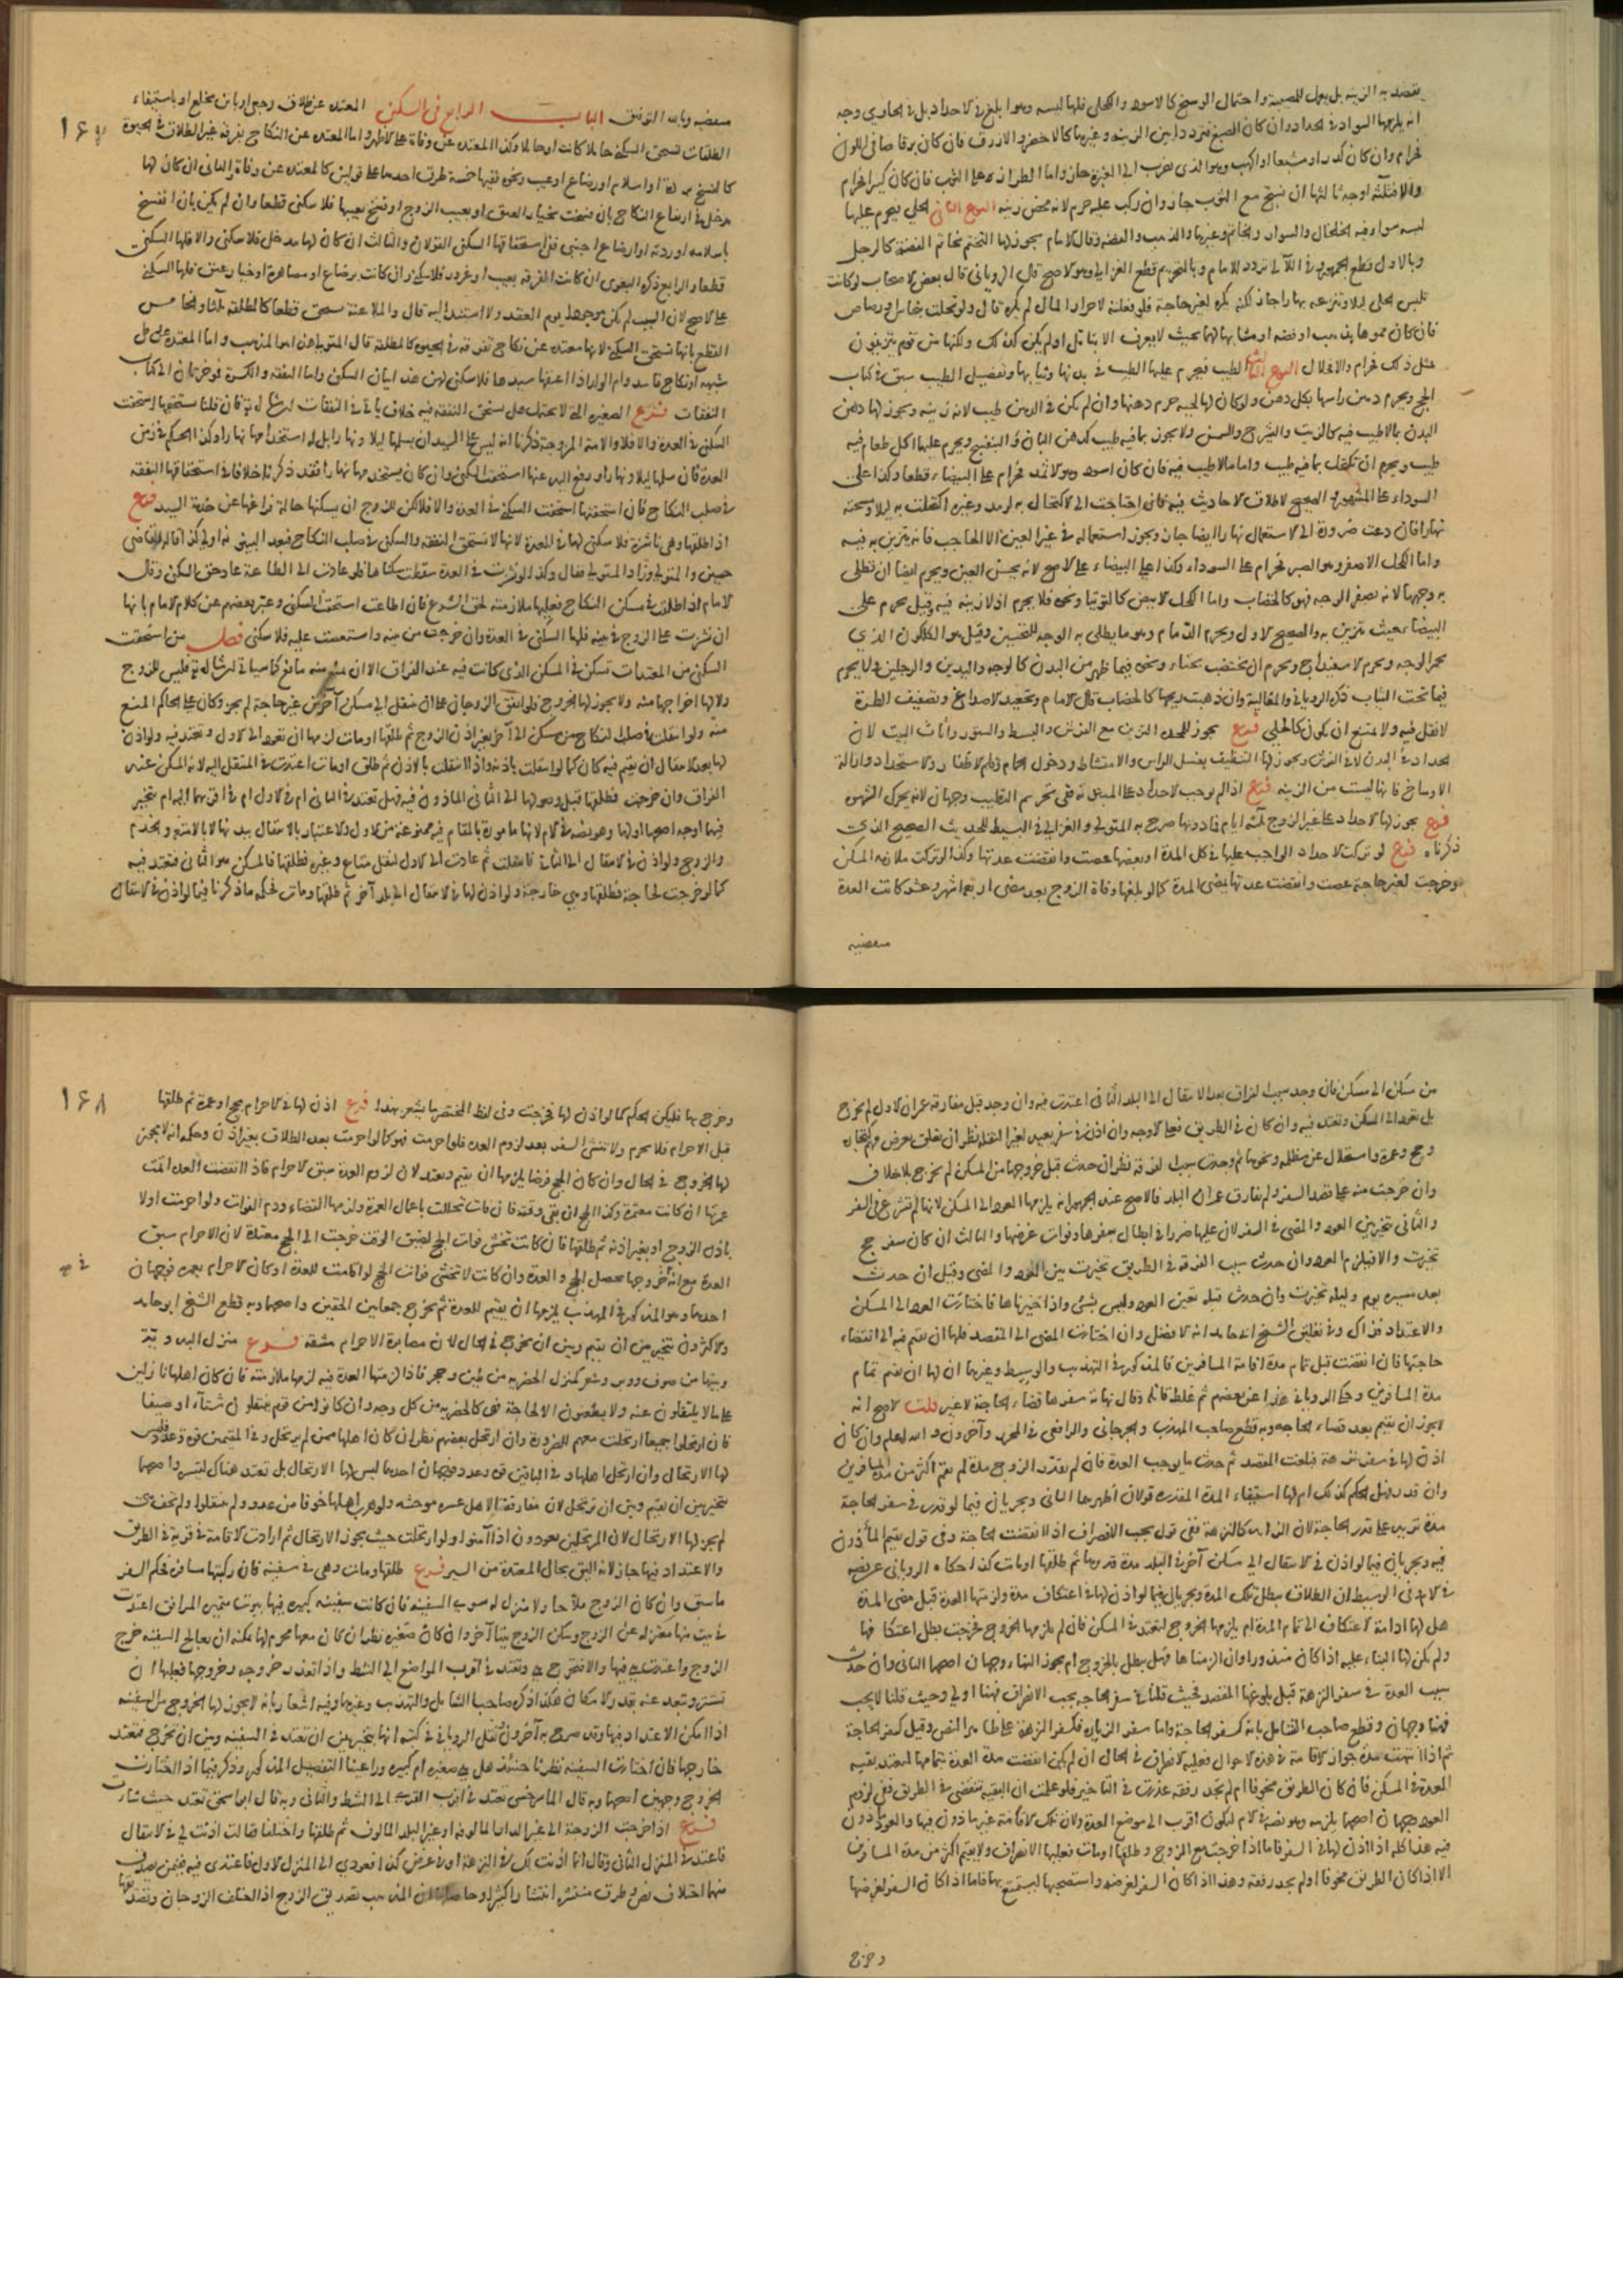 يقصد به الزينة بل يعمل للمصيبة واحتمال الوسخ كالأسود والكحلي فلها لبسه وهو أبلغ في الاحداد بل في الحاوي وجه
أنه يلزمها السواد في الحداد وان كان الصبغ متردد بين الزينة وغيرها كالاخضر والازرق فان كان براقا صافي اللون
فحرام وان كان كدرا أو مشبعا أو أكهب وهو الذي يضرب الى الغبرة جاز وأما الطراز على الثوب فان كان كبيرا فحرام
والا فثلثة أوجه ثالثها ان نسج مع الثوب جاز وان ركب عليه حرم لانه محض زينة النوع الثاني الحلي فيحرم عليها
لبسه سواء فيه الخلخال والسوار والخاتم وغيرها والذهب والفضة وقال الامام يجوز لها التختم بخاتم الفضة كالرجل
وبالاول قطع الجمهور وفي اللآلي تردد للامام وبالتحريم قطع الغزالي وهو الاصح قال الروياني قال بعض الاصحاب لو كانت
تلبس الحلي ليلا وتنزعه نهارا جاز لكنه يكره لغير حاجة فلو فعلته لاحراز المال لم يكره قال ولو تحلت بنحاس أو رصاص
فان كان مموها بذهب أو فضة أو مشابها لهما بحيث لا يعرف الا بتأمل أو لم يكن كذلك ولكنها من قوم يتزينون
بمثل ذلك فحرام والا فحلال النوع الثالث الطيب فيحرم عليها الطيب في بدنها وثيابها وتفصيل الطيب سبق في كتاب
الحج ويحرم دهن رأسها بكل دهن ولو كان لها لحية حرم دهنها وان لم يكن في الدهن طيب لانه زينة ويجوز لها دهن
البدن بما لا طيب فيه كالزيت والشيرج والسمن ولا يجوز بما فيه طيب كدهن البان والبنفسج ويحرم عليها أكل طعام فيه
طيب ويحرم ان تكتحل بما فيه طيب وأما ما لا طيب فيه فان كان أسود وهو الاثمد فحرام على البيضاء قطعا وكذا على
السوداء على المشهور الصحيح لاطلاق الاحاديث فيه فان احتاجت الى الاكتحال به لرمد وغيره اكتحلت به ليلا ومسحته
نهارا فان دعت ضرورة الى الاستعمال نهارا أيضا جاز ويجوز استعماله في غير العين الا الحاجب فانه يتزين به فيه
وأما الكحل الاصفر وهو الصبر فحرام على السوداء وكذا على البيضاء على الاصح لانه يحسن العين ويحرم أيضا ان تطلي
به وجهها لانه يصفر الوجه فهو كالخضاب وأما الكحل الابيض كالتوتيا ونحوه فلا يحرم اذ لا زينة فيه وقيل يحرم على
البيضاء حيث تتزين به والصحيح الاول ويحرم الدمام وهو ما يطلى به الوجه للتحسين وقيل هو الكلكون الذي
يحمر الوجه ويحرم الاسفيداج ويحرم ان تختضب بحناء ونحوه فيما ظهر من البدن كالوجه واليدين والرجلين ولا يحرم
فيما تحت الثياب ذكره الروياني والغالية وان ذهبت ريحها كالخضاب قال الامام وتجعيد الاصداغ وتصفيف الطرة
لا نقل فيه ولا يمتنع ان يكون كالحلي فرع يجوز للمحدة التزين في الفرش والبسط والستور وأثاث البيت لان
الحداد في البدن لا في الفرش ويجوز لها التنظيف بغسل الرأس والامتشاط ودخول الحمام وقلم الاظفار والاستحداد وازالة
الاوساخ فانها ليست من الزينة فرع اذا لم نوجب الاحداد على المبتوتة ففي تحريم التطيب وجهان لانه يحرك الشهوة
فرع يجوز لها الاحداد على غير الزوج ثلثة أيام فما دونها صرح به المتولي والغزالي في البسيط للحديث الصحيح الذي
ذكرناه فرع لو تركت الاحداد الواجب عليها في كل المدة أو بعضها عصت وانقضت عدتها وكذا لو تركت ملازمة المسكن
وخرجت لغير حاجة عصت وانقضت عدتها بمضي المدة كما لو بلغها وفاة الزوج بعد مضي اربعة اشهر وعشر كانت العدة
منقضية
منقضية وبالله التوفيق الباب الرابع في السكنى المعتدة عن طلاق رجعي أو بائن بخلع أو باستيفاء
١٤٧
الطلقات تستحق السكنى حاملا كانت أو حائلا وكذا المعتدة عن وفاة على الاظهر وأما المعتدة عن النكاح بفرقة غير الطلاق في الحيوة
كالفسخ بردة أو اسلام أو رضاع أو عيب ونحوه ففيها خمسة طرق احدها على قولين كالمعتدة عن وفاة والثاني ان كان لها
مدخل في ارتفاع النكاح بان فسخت بخيار العتق أو بعيب الزوج أو فسخ بعيبها فلا سكنى قطعا وان لم يكن بان انفسخ
باسلامه أو ردته أو ارضاع اجنبي ففي استحقاقها السكنى القولان والثالث ان كان لها مدخل فلا سكنى والا فلها السكنى
قطعا والرابع ذكره البغوي ان كانت الفرقة بعيب أو غرور فلا سكنى وان كانت برضاع أو مصاهرة أو خيار عتق فلها السكنى
على الاصح لان السبب لم يكن موجودا يوم العقد ولا استند اليه قال والملاعنة تستحق قطعا كالمطلقة ثلاثا والخامس
القطع بانها تستحق السكنى لانها معتدة عن نكاح بفرقة في الحيوة كالمطلقة قال المتولي هذا هو المذهب وأما المعتدة عن وطئ
شبهة أو نكاح فاسد وأم الولد اذا أعتقها سيدها فلا سكنى لهن هذا بيان السكنى وأما النفقة والكسوة فمؤخران الى كتاب
النفقات فرع الصغيرة التي لا تحتمل هل تستحق النفقة فيه خلاف يأتي في النفقات ان شاء الله تعالى فان قلنا تستحقها استحقت
السكنى في العدة والا فلا والامة المزوجة ذكرنا انه ليس على السيد ان يسلمها ليلا ونهارا بل له استخدامها نهارا وكذا الحكم في زمن
العدة فان سلمها ليلا ونهارا ورفع اليد عنها استحقت السكنى وان كان يستخدمها نهارا فقد ذكرنا خلافا في استحقاقها النفقة
في صلب النكاح فان استحقتها استحقت السكنى في العدة والا فلا لكن للزوج ان يسكنها حالة فراغها من خدمة السيد فرع
اذا طلقها وهي ناشزة فلا سكنى لها في العدة لانها لا تستحق النفقة والسكنى في صلب النكاح فبعد البينونة أولى كذا قاله القاضي
حسين والمتولي وزاد المتولي فقال وكذا لو نشزت في العدة سقطت سكناها فلو عادت الى الطاعة عاد حق السكنى وقال
الامام اذا طلقت في مسكن النكاح فعليها ملازمته لحق الشرع فان اطاعت استحقت السكنى وعبر بعضهم عن كلام الامام بانها
ان نشزت على الزوج في بيته فلها السكنى في العدة وان خرجت من بيته واستعصت عليه فلا سكنى فصل من استحقت
السكنى من المعتدات تسكن في المسكن الذي كانت فيه عند الفراق الا ان يمنع منه مانع كما سيأتي ان شاء الله تعالى فليس للزوج
ولا لاهله اخراجها منه ولا يجوز لها الخروج فلو اتفق الزوجان على ان تنتقل الى مسكن آخر من غير حاجة لم يجز وكان على الحاكم المنع
منه ولو انتقلت في صلب النكاح من مسكن الى آخر بغير اذن الزوج ثم طلقها أو مات لزمها ان تعود الى الاول وتعتد فيه ولو أذن
لها بعد الانتقال ان تقيم فيه كان كما لو انتقلت باذنه واذا انتقلت بالاذن ثم طلق أو مات اعتدت في المنتقل اليه لانه المسكن عند
الفراق وان خرجت فطلقها قبل وصولها الى الثاني المأذون فيه فهل تعتد في الثاني أم في الاول أم في أقربهما اليها أم تتخير
فيها أوجه أصحها أولها وهو نصه في الام لانها مأمورة بالمقام فيه ممنوعة من الاول والاعتبار بالانتقال ببدنها لا بالامتعة والخدم
والزوج ولو أذن في الانتقال الى الثاني فانتقلت ثم عادت الى الاول لنقل متاع وغيره فطلقها فالمسكن هو الثاني فتعتد فيه
كما لو خرجت لحاجة فطلقها وهي خارجة ولو أذن لها في الانتقال الى بلد آخر ثم طلقها أو مات فحكمه ما ذكرنا فيما لو أذن في الانتقال
من مسكن الى مسكن فان وجد سبب الفراق بعد الانتقال الى البلد الثاني اعتدت فيه وان وجد قبل مفارقة عمران الاول لم تخرج
بل تعود الى المسكن وتعتد فيه وان كان في الطريق فعلى الاوجه وان أذن في سفر بعيد لغير النقلة نظر ان تعلق بغرض مهم كتجارة
وحج وعمرة واستحلال عن مظلمة ونحوها ثم حدث سبب الفرقة نظر ان حدث قبل خروجها من المسكن لم تخرج بلا خلاف
وان خرجت منه على قصد السفر ولم تفارق عمران البلد فالاصح عند الجمهور انه يلزمها العود الى المسكن لانها لم تشرع في السفر
والثاني تتخير بين العود والمضي في السفر لان عليها ضررا في ابطال سفرها وفوات غرضها والثالث ان كان سفر حج
تخيرت والا فيلزم العود وان حدث سبب الفرقة في الطريق تخيرت بين العود والمضي وقيل ان حدث
بعد مسيرة يوم وليلة تخيرت وان حدث قبله تعين العود وليس بشئ واذا خيرناها فاختارت العود الى المسكن
والاعتداد فذاك وفي تعليق الشيخ أبي حامد انه الافضل وان اختارت المضي الى المقصد فلها ان تقيم فيه الى انقضاء
حاجتها فان انقضت قبل تمام مدة اقامة المسافرين فالمذكور في التهذيب والوسيط وغيرهما ان لها ان تقيم تمام
مدة المسافرين وحكى الروياني هذا عن بعضهم ثم غلط قائله وقال نهاية سفرها قضاء الحاجة لا غير قلت الاصح انه
لا يجوز ان تقيم بعد قضاء الحاجة وبه قطع صاحب المهذب والجرجاني والرافعي في المحرر وآخرون والله أعلم وان كان
أذن لها في سفر نزهة فبلغت المقصد ثم حدث ما يوجب العدة فان لم يقدر الزوج مدة لم تقم أكثر من مدة المسافرين
وان قدر فهل الحكم كذلك أم لها استيفاء المدة المقدرة قولان أظهرهما الثاني ويجريان فيما لو قدر في سفر الحاجة
مدة تزيد على قدر الحاجة لان الزائد كالنزهة ففي قول يجب الانصراف اذا انقضت الحاجة وفي قول تقيم المأذون
فيه ويجريان فيما لو أذن في الانتقال الى مسكن آخر في البلد مدة قدرها ثم طلقها أو مات كذا حكاه الروياني عن نصه
في الام وفي الوسيط ان الطلاق يبطل تلك المدة ويجريان فيما لو أذن لها في اعتكاف مدة ولزمتها العدة قبل مضي المدة
هل لها ادامة الاعتكاف الى تمام المدة أم يلزمها الخروج لتعتد في المسكن فان لم يلزمها الخروج فخرجت بطل اعتكافها
ولم يكن لها البناء عليه اذا كان منذورا وان الزمناها فهل يبطل بالخروج أم يجوز البناء وجهان أصحهما الثاني وان حدث
سبب العدة في سفر النزهة قبل بلوغها المقصد فحيث قلنا في سفر الحاجة يجب الانصراف فهنا أولى وحيث قلنا لا يجب
فهنا وجهان وقطع صاحب الشامل بانه كسفر الحاجة وأما سفر الزيارة فكسفر النزهة على ظاهر النص وقيل كسفر الحاجة
ثم اذا انتهت مدة جواز الاقامة في هذه الاحوال فعليها الانصراف في الحال ان لم يكن انقضت مدة العدة بتمامها لتعتد بقية
العدة في المسكن فان كان الطريق مخوفا أو لم تجد رفقة عذرت في التأخير فلو علمت ان البقية تنقضي في الطريق ففي لزوم
العود وجهان أصحهما يلزمه وهو نصه في الام ليكون أقرب الى موضع العدة ولان تلك الاقامة غير مأذون فيها والعود مأذون
فيه هذا كله اذا أذن لها في السفر فأما اذا خرجت مع الزوج وطلقها أو مات فعليها الانصراف ولا تقيم أكثر من مدة المسافرين
الا اذا كان الطريق مخوفا أو لم تجد رفقة وهذا اذا كان السفر لغرضه واستصحبها ليستمتع بها فأما اذا كان السفر لغرضها
وخرج
وخرج بها فليكن الحكم كما لو أذن لها فخرجت وفي لفظ المختصر ما يشعر بهذا فرع أذن لها في الاحرام بحج أو عمرة ثم طلقها
١٤٨
قبل الاحرام فلا تحرم ولا تنشئ السفر بعد لزوم العدة فلو احرمت فهو كما لو احرمت بعد الطلاق بغير اذن وحكمه انه لا يجوز
لها الخروج في الحال وان كان الحج فرضا بل يلزمها ان تقيم وتعتد لان لزوم العدة سبق الاحرام فاذا انقضت العدة أتمت
عمرتها ان كانت معتمرة وكذا الحج ان بقي وقته فان فات تحللت باعمال العمرة ولزمها القضاء ودم الفوات ولو احرمت أولا
باذن الزوج أو بغير اذنه ثم طلقها فان كانت تخشى فوات الحج لضيق الوقت خرجت الى الحج معتدة لان الاحرام سبق
العدة مع انه في خروجها يحصل الحج والعدة وان كانت لا تخشى فوات الحج لو اقامت للعدة أو كان الاحرام بعمرة فوجهان
احدهما وهو المذكور في المهذب يلزمها ان تقيم للعدة ثم تخرج جمعا بين الحقين واصحهما وبه قطع الشيخ ابو حامد
والاكثرون تتخير بين ان تقيم وبين ان تخرج في الحال لان مصابرة الاحرام مشقة فرع منزل البدوية
وبيتها من صوف ووبر وشعر كمنزل الحضرية من طين وحجر فاذا لزمتها العدة فيه لزمها ملازمته فان كان اهلها نازلين
على ما لا ينتقلون عنه ولا يظعنون الا لحاجة فهي كالحضرية من كل وجه وان كانوا من قوم ينتقلون شتاء أو صيفا
فان ارتحلوا جميعا ارتحلت معهم للضرورة وان ارتحل بعضهم نظر ان كان اهلها ممن لم يرتحل وفي المقيمين قوة وعدد فليس
لها الارتحال وان ارتحل اهلها وفي الباقين قوة وعدد فوجهان احدهما ليس لها الارتحال بل تعتد هناك لتيسره واصحهما
تتخير بين ان تقيم وبين ان ترتحل لان مفارقة الاهل عسرة موحشة ولو هرب اهلها خوفا من عدو ولم ينتقلوا ولم تخف هي
لم يجز لها الارتحال لان المرتحلين يعودون اذا آمنوا ولو ارتحلت حيث يجوز الارتحال ثم ارادت الاقامة في قرية في الطريق
والاعتداد فيها جاز لانه اليق بحال المعتدة من السير فرع طلقها أو مات وهي في سفينة فان ركبتها مسافرة فحكم السفر
ما سبق وان كان الزوج ملاحا ولا منزل له سوى السفينة فان كانت سفينة كبيرة فيها بيوت متميزة المرافق اعتدت
في بيت منها معتزلة عن الزوج وسكن الزوج بيتا آخر وان كان صغيرة نظر ان كان معها محرم لها يمكنه ان يعالج السفينة خرج
الزوج واعتدت هي فيها والا فتخرج هي وتعتد في اقرب المواضع الى الشط واذا تعذر خروجه وخروجها فعليها ان
تستتر وتبعد عنه بقدر الامكان هكذا ذكره صاحبا الشامل والتهذيب وغيرهما وفيه اشعار بانه لا يجوز لها الخروج من السفينة
اذا أمكن الاعتداد فيها وقد صرح به آخرون ونقل الروياني في كتبه انها تتخير بين ان تعتد في السفينة وبين ان تخرج فتعتد
خارجها فان اختارت السفينة نظرنا حينئذ هل هي صغيرة أم كبيرة وراعينا التفصيل المذكور وذكر فيما اذا اختارت
الخروج وجهين اصحهما وبه قال الماسرجسي تعتد في اقرب القرى الى الشط والثاني وبه قال ابو اسحق تعتد حيث شاءت
فرع اذا خرجت الزوجة الى غير الدار المألوفة أو غير البلد المألوف ثم طلقها واختلفا فقالت أذنت لي في الانتقال
فاعتد في المنزل الثاني وقال انما أذنت لك في النزهة أو في غرض كذا فعودي الى المنزل الاول فاعتدي فيه فمن يصدق
منهما اختلاف نص وطرق منتشرة انتشارا كثيرا وحاصلها ان المذهب تصديق الزوج اذا اختلف الزوجان وتصديقها